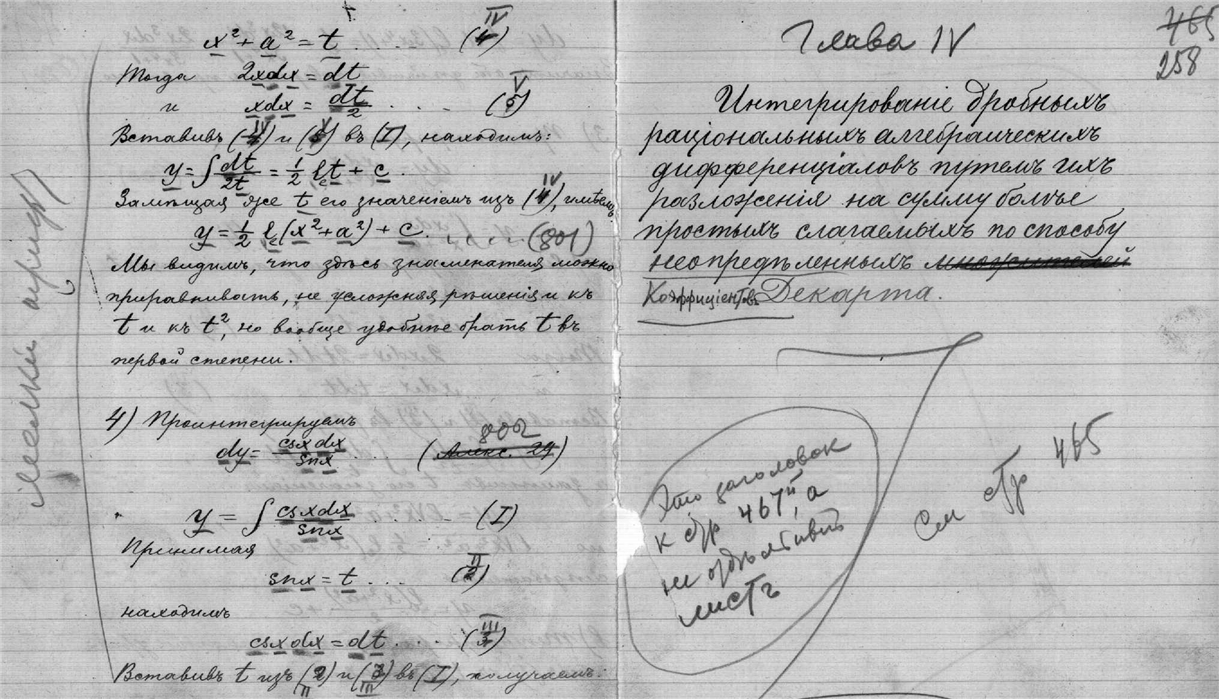 x² + a² = t . . . (IV)
Тогда 2xdx = dt
и xdx = dt/2 . . . (V)
Вставивъ (IV) и (V) въ (I), находимъ:
y = ∫ dt/2t = 1/2 lt + c.
Замѣщая же t его значеніемъ изъ (IV), имѣемъ
y = 1/2 l(x² + a²) + c . . . . (801)
Мы видимъ, что здѣсь знаменателя можно
приравнивать, не усложняя рѣшенія и къ
t и къ t², но вообще удобнѣе брать t въ
первой степени.
4) Проинтегрируемъ
dy = csx dx/snx (802 Алекс. 24)
y = ∫ csx dx/snx (I)
Принимая
snx = t . . . (II)
находимъ
csx dx = dt . . . (III)
Вставивъ t изъ (II) и (III) въ (I), получаемъ:
мелкий шрифт
465
258
Глава IV
Интегрированіе дробныхъ
раціональныхъ алгебраическихъ
дифференціаловъ путемъ ихъ
разложенія на сумму болѣе
простыхъ слагаемыхъ по способу
неопредѣленныхъ множителей
Коэффиціентовъ Декарта.
Это заголовок
к стр 467, а
не
листъ
см стр 465